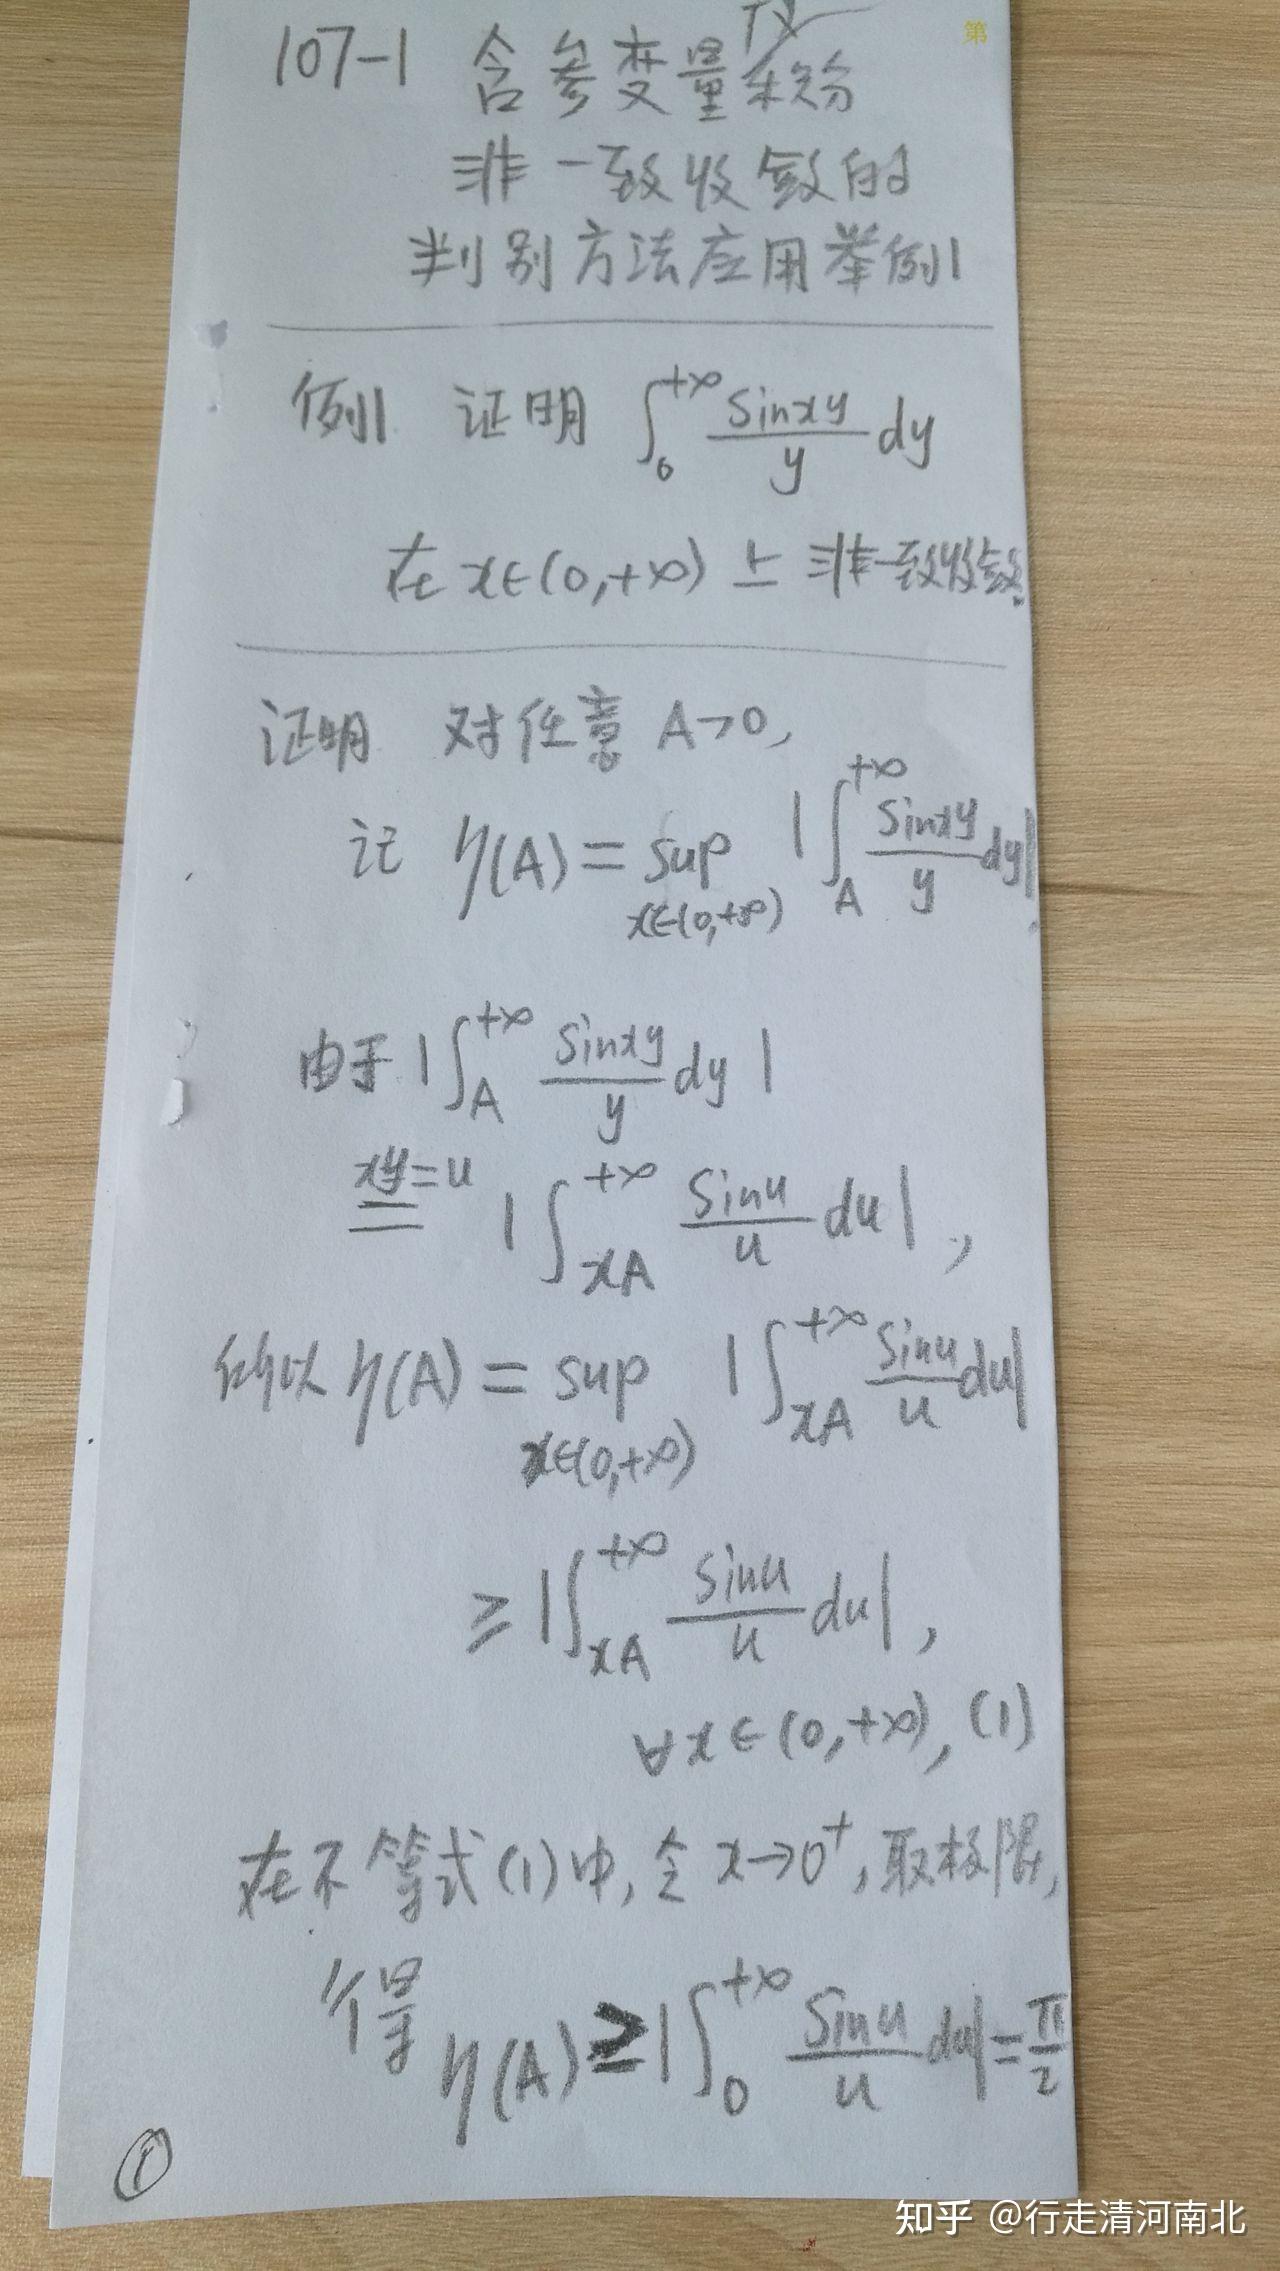 第
107-1 含参变量积分
非一致收敛的
判别方法应用举例1
例1 证明 ∫₀^{+∞} sinxy/y dy
在 x∈(0,+∞) 上 非一致收敛.
证明 对任意 A>0,
记 η(A) = sup_{x∈(0,+∞)} |∫_A^{+∞} sinxy/y dy|.
由于 |∫_A^{+∞} sinxy/y dy|
xy=u
= |∫_{xA}^{+∞} sinu/u du|,
所以 η(A) = sup_{x∈(0,+∞)} |∫_{xA}^{+∞} sinu/u du|
≥ |∫_{xA}^{+∞} sinu/u du|,
∀x∈(0,+∞), (1)
在不等式(1)中, 令 x→0⁺, 取极限,
得 η(A) ≥ |∫₀^{+∞} sinu/u du| = π/2
①
知乎 @行走清河南北